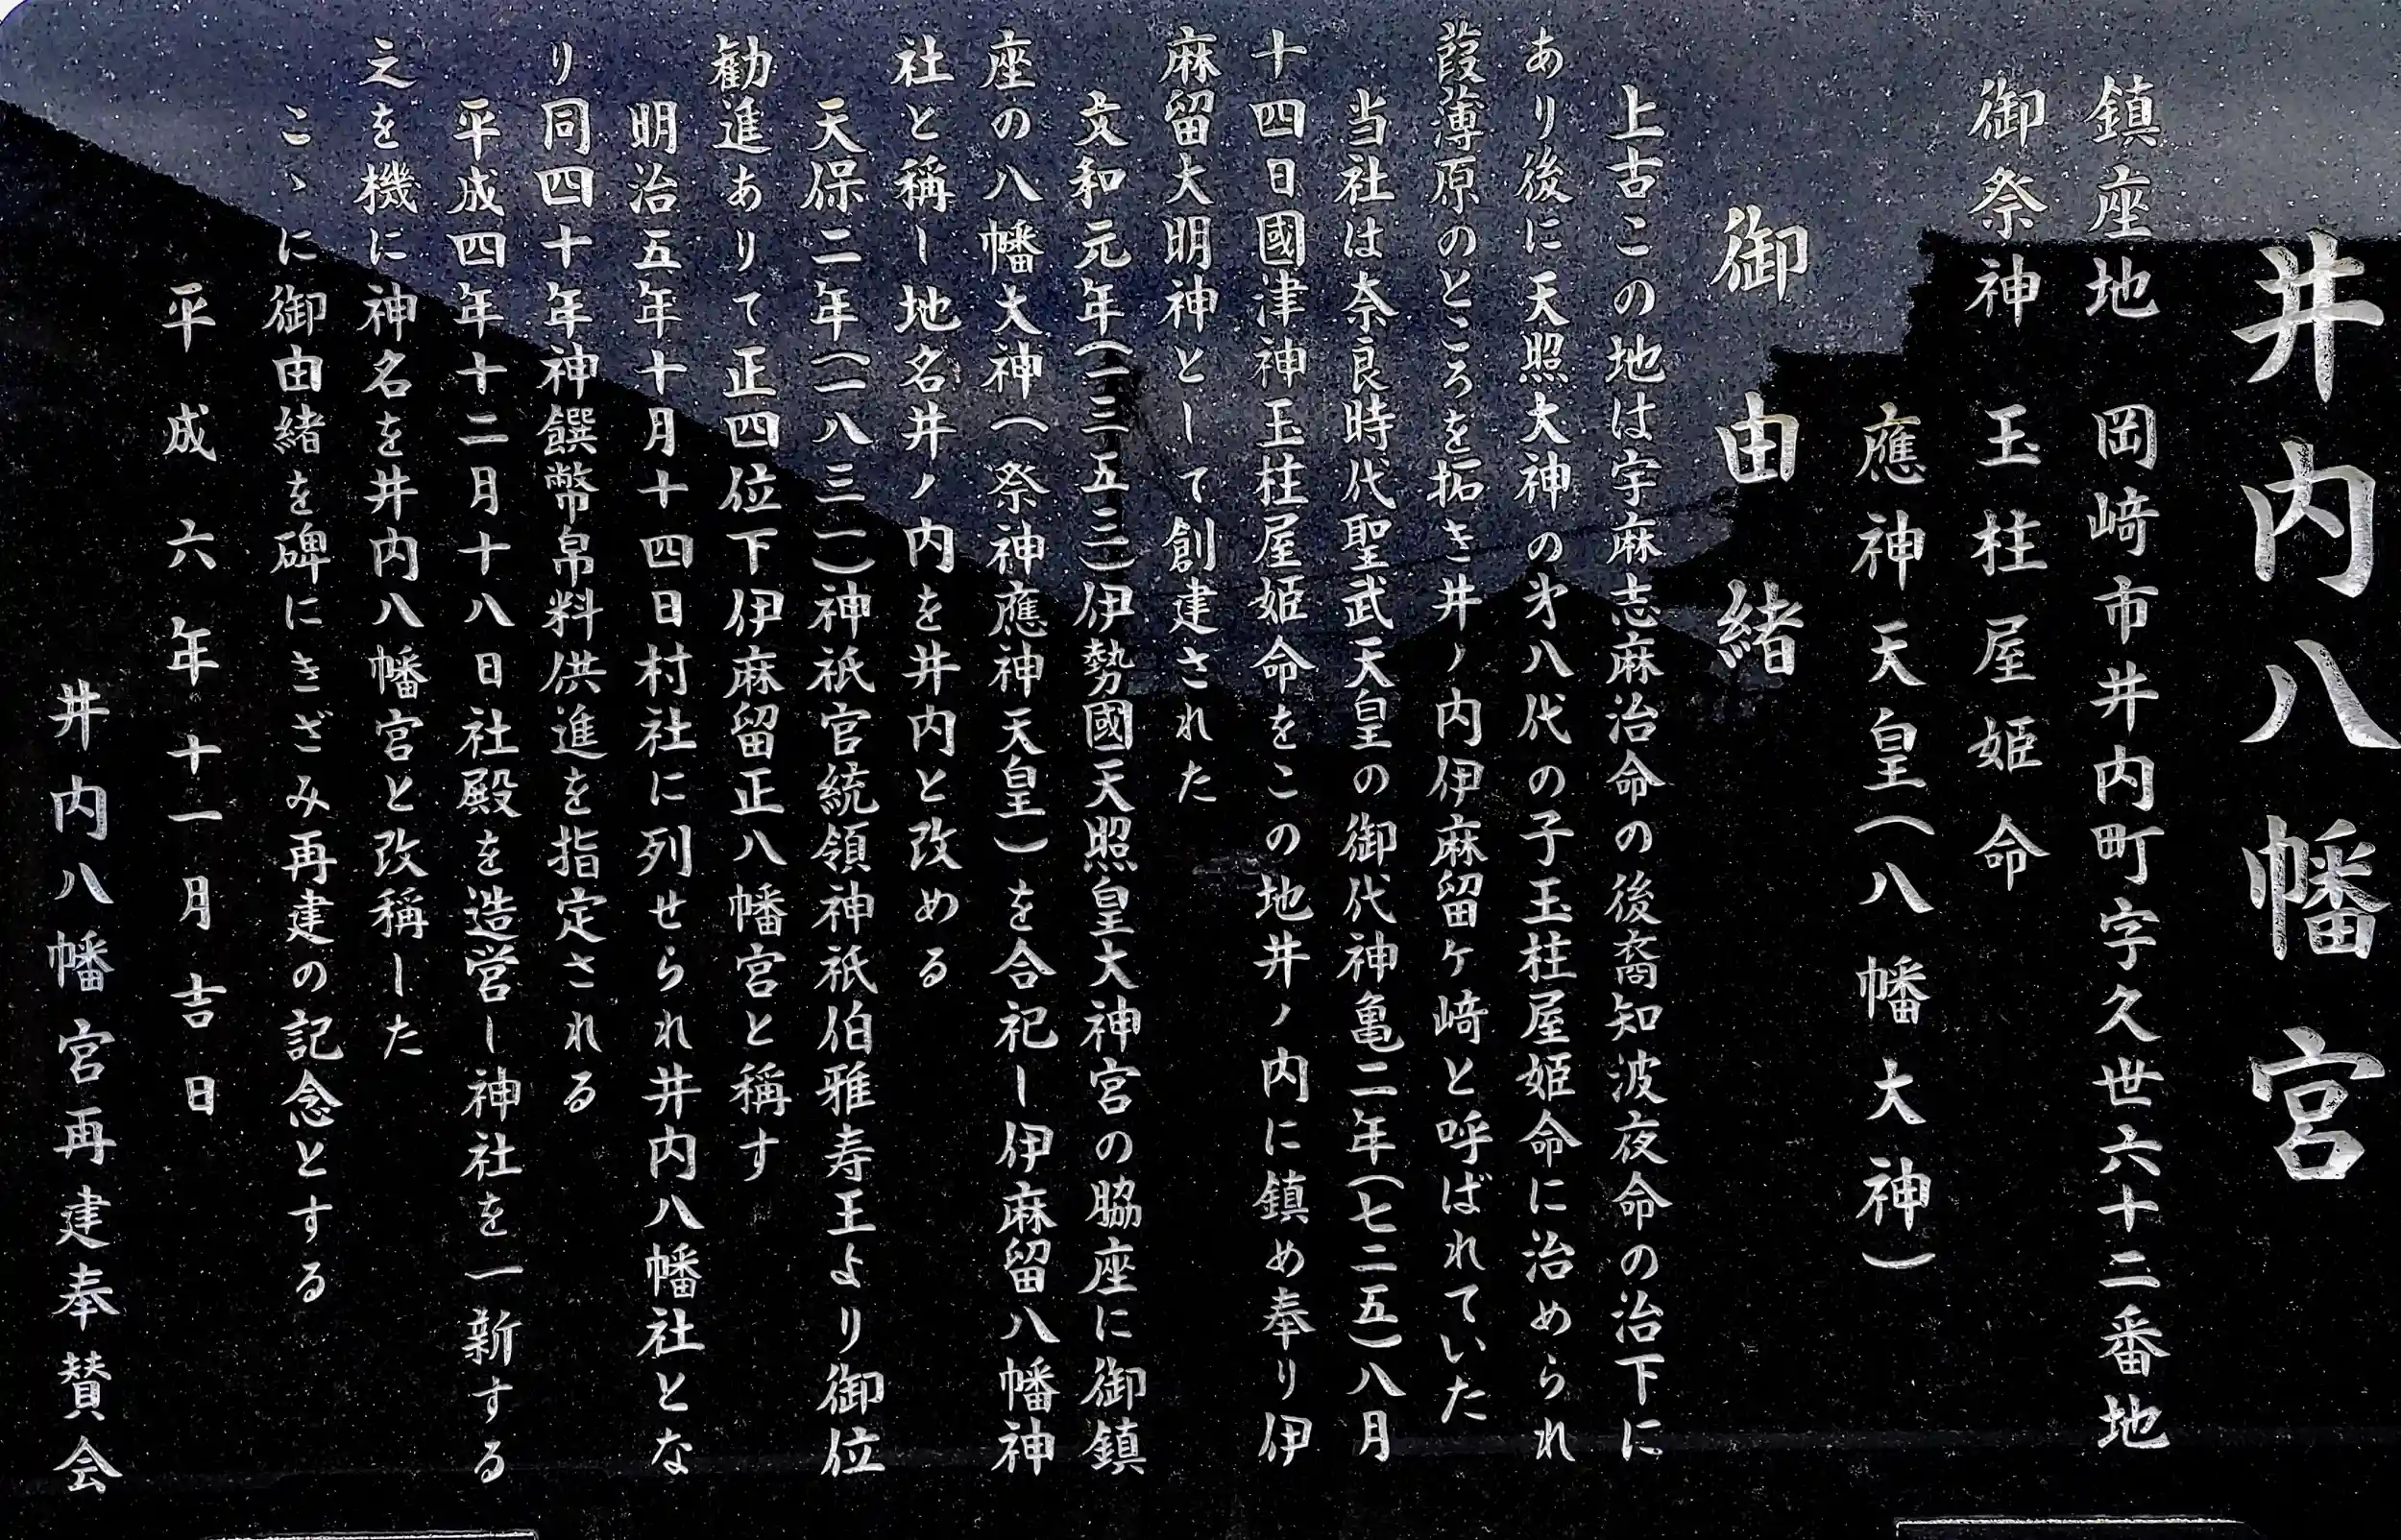 井内八幡宮
鎮座地 岡﨑市井内町字久世六十二番地
御祭神 玉柱屋姫命
應神天皇(八幡大神)
御由緒
上古この地は宇麻志麻治命の後裔知波夜命の治下に
あり後に天照大神の㐧八代の子玉柱屋姫命に治められ
葭薄原のところを拓き井ノ内伊麻留ヶ﨑と呼ばれていた
当社は奈良時代聖武天皇の御代神亀二年(七二五)八月
十四日國津神玉柱屋姫命をこの地井ノ内に鎮め奉り伊
麻留大明神として創建された
文和元年(一三五三)伊勢國天照皇大神宮の脇座に御鎮
座の八幡大神(祭神應神天皇)を合祀し伊麻留八幡神
社と稱し地名井ノ内を井内と改める
天保二年(一八三一)神祇官統領神祇伯雅寿王より御位
勧進ありて正四位下伊麻留正八幡宮と稱す
明治五年十月十四日村社に列せられ井内八幡社とな
り同四十年神饌幣帛料供進を指定される
平成四年十二月十八日社殿を造営し神社を一新する
之を機に神名を井内八幡宮と改稱した
こゝに御由緒を碑にきざみ再建の記念とする
平成六年十一月吉日
井内八幡宮再建奉賛会